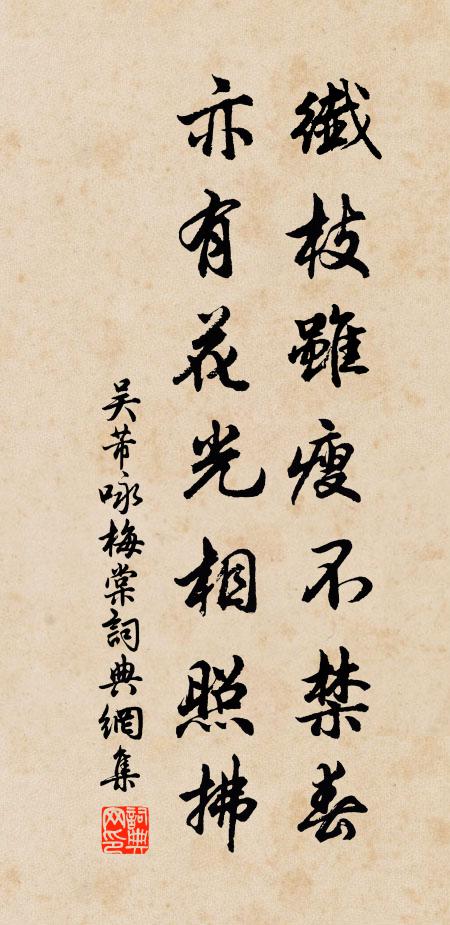 纖枝雖瘦不禁春
亦有花光相照拂
吴芾咏梅棠詞典網集
詞典网印